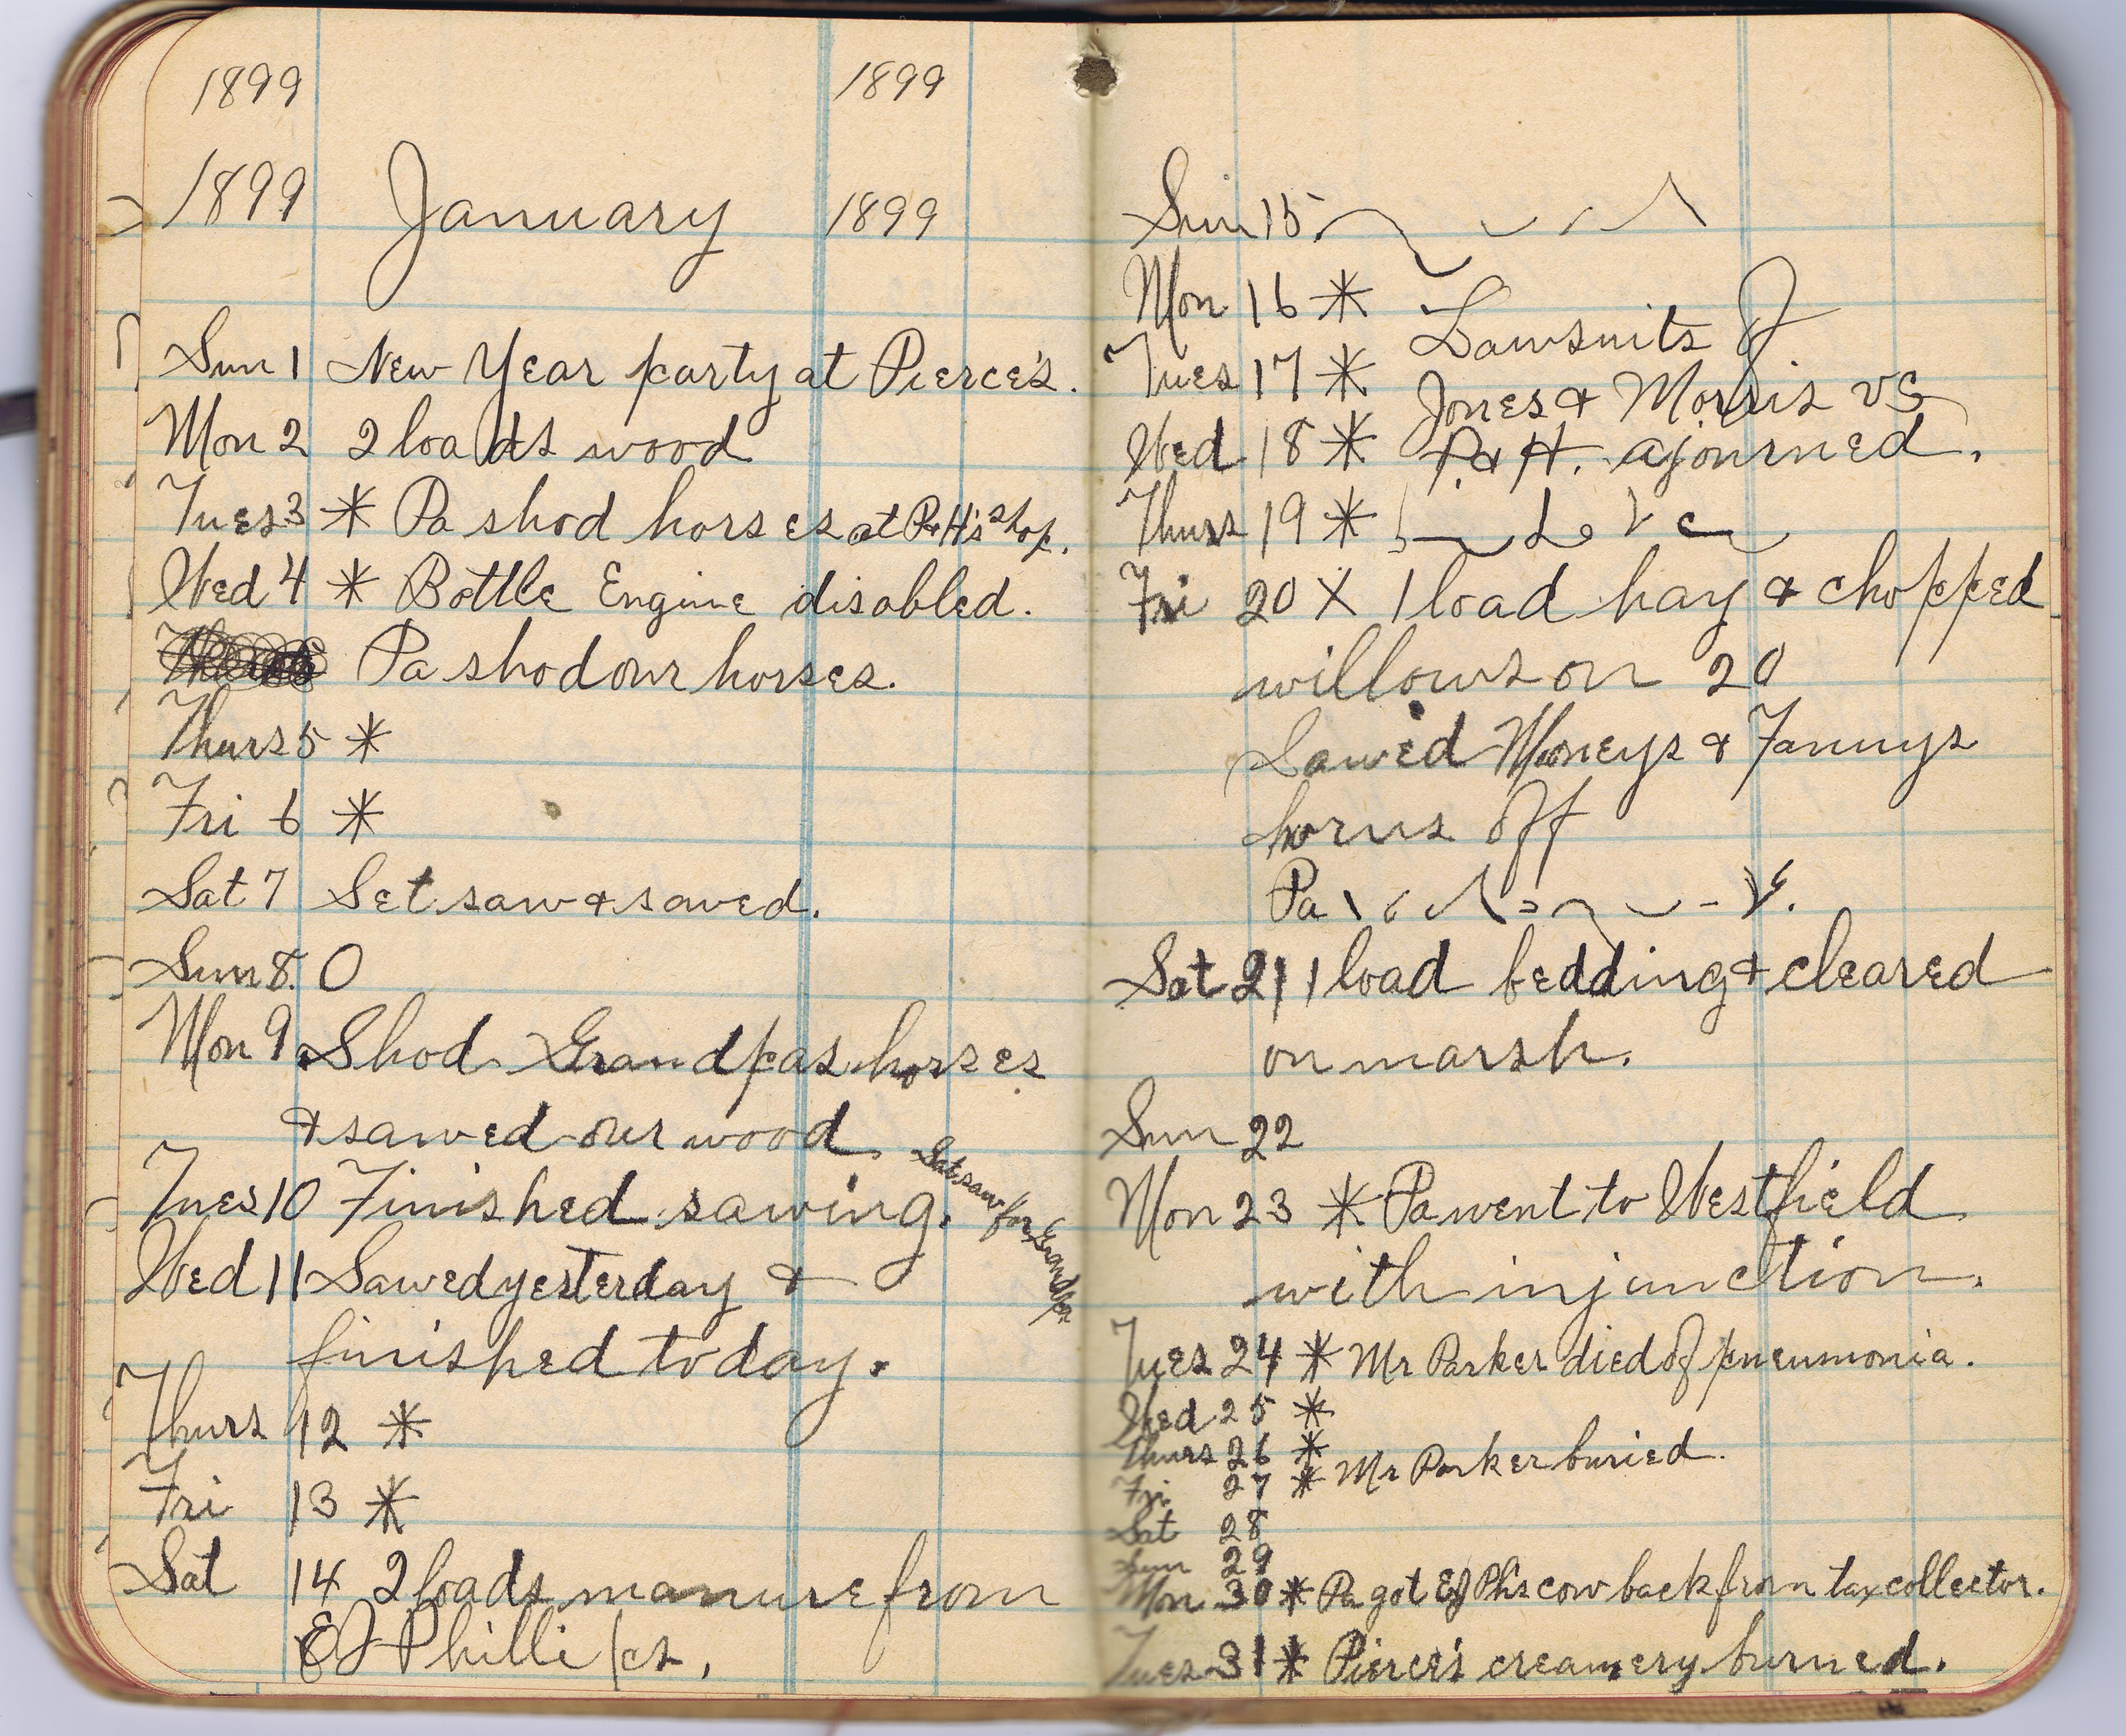 1899 1899
1899 January 1899
Sun 1 New Year party at Pierce's.
Mon 2 2 loads wood
Tues 3 * Pa shod horses at P&H's shop.
Wed 4 * Bottle Engine disabled.
Pa shod our horses.
Thurs 5 *
Fri 6 *
Sat 7 Set saw & sawed.
Sun 8. 0
Mon 9 Shod Grandpas horses
& sawed our wood.
Tues 10 Finished sawing. Set saw for Grandpa
Wed 11 Sawed yesterday &
finished today.
Thurs 12 *
Fri 13 *
Sat 14 2 loads manure from
EJ Phillips.
Sun 15
Mon 16 * Lawsuits of
Tues 17 * Jones & Morris vs
Wed 18 * P & H. ajourned.
Thurs 19 *
Fri 20 X 1 load hay & chopped
willows on 20
Sawed Mooneys & Fannys
horns off
Pa
Sat 21 1 load bedding & cleared
on marsh.
Sun 22
Mon 23 * Pa went to Westfield
with injunction.
Tues 24 * Mr Parker died of pneumonia.
Wed 25 *
Thurs 26 *
Fri. 27 * Mr Parker buried.
Sat 28
Sun 29
Mon 30 * Pa got EJ Ph's cow back from tax collector.
Tues 31 * Pierce's creamery burned.